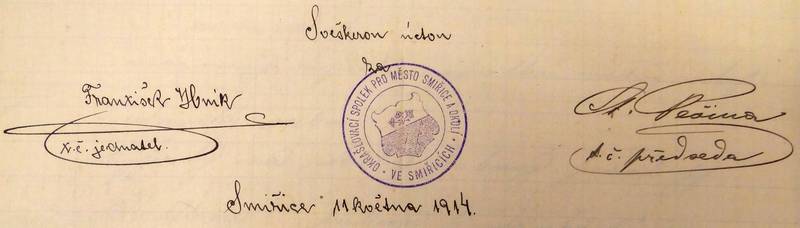 Svéškerou úctou
za
František Hnik
t.č. jednatel.
OKRAŠLOVACÍ SPOLEK PRO MĚSTO SMIŘICE A OKOLÍ
VE SMIŘICÍCH
Pečina
t.č. předseda
Smiřice 11 května 1914.